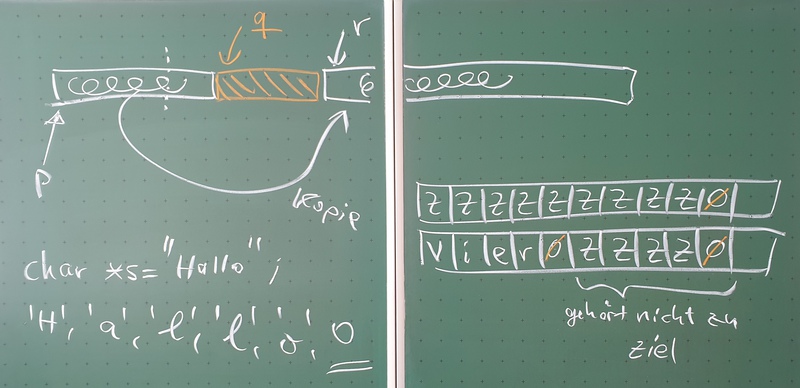 q
r
p
Kopie
char *s="Hallo";
'H', 'a', 'l', 'l', 'o', 0
Z Z Z Z Z Z Z Z Z 0
V i e r 0 Z Z Z Z 0
gehört nicht zu
ziel